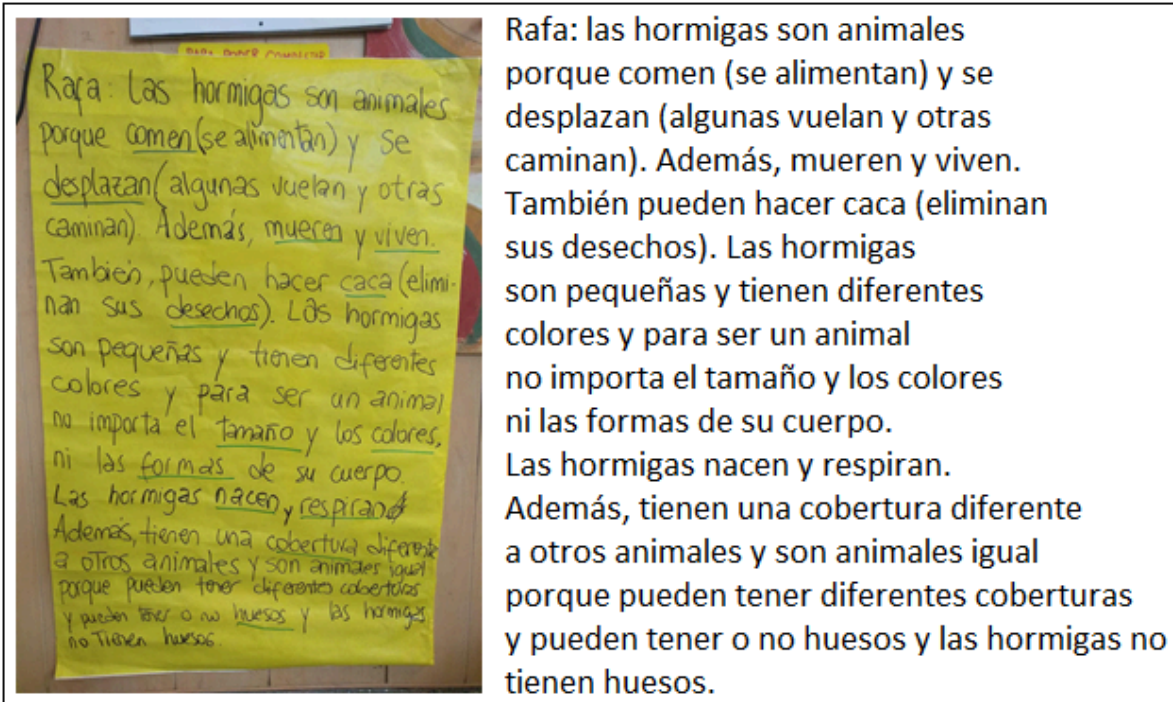 PARA PODER COMPLETAR
Rafa: Las hormigas son animales
porque comen (se alimentan) y se
desplazan (algunas vuelan y otras
caminan). Además, mueren y viven.
También, pueden hacer caca (elimi-
nan sus desechos). Las hormigas
son pequeñas y tienen diferentes
colores y para ser un animal
no importa el tamaño y los colores,
ni las formas de su cuerpo.
Las hormigas nacen y respiran
Además, tienen una cobertura diferente
a otros animales y son animales igual
porque pueden tener diferentes coberturas
y pueden tener o no huesos y las hormigas
no tienen huesos.
Rafa: las hormigas son animales
porque comen (se alimentan) y se
desplazan (algunas vuelan y otras
caminan). Además, mueren y viven.
También pueden hacer caca (eliminan
sus desechos). Las hormigas
son pequeñas y tienen diferentes
colores y para ser un animal
no importa el tamaño y los colores
ni las formas de su cuerpo.
Las hormigas nacen y respiran.
Además, tienen una cobertura diferente
a otros animales y son animales igual
porque pueden tener diferentes coberturas
y pueden tener o no huesos y las hormigas no
tienen huesos.